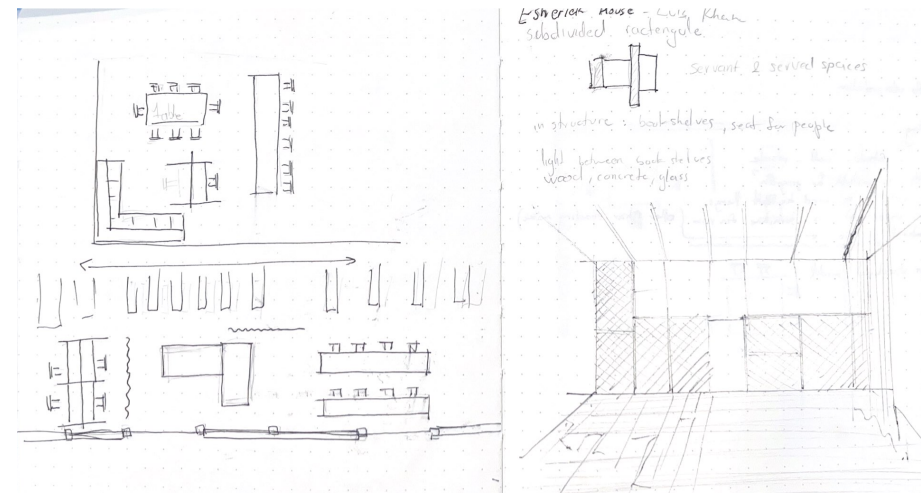 table
Esherick House - Luis, Khan
subdivided ractengule
servant & served spaces
in structure: bookshelves, seat for people
light between bookshelves
wood, concrete, glass